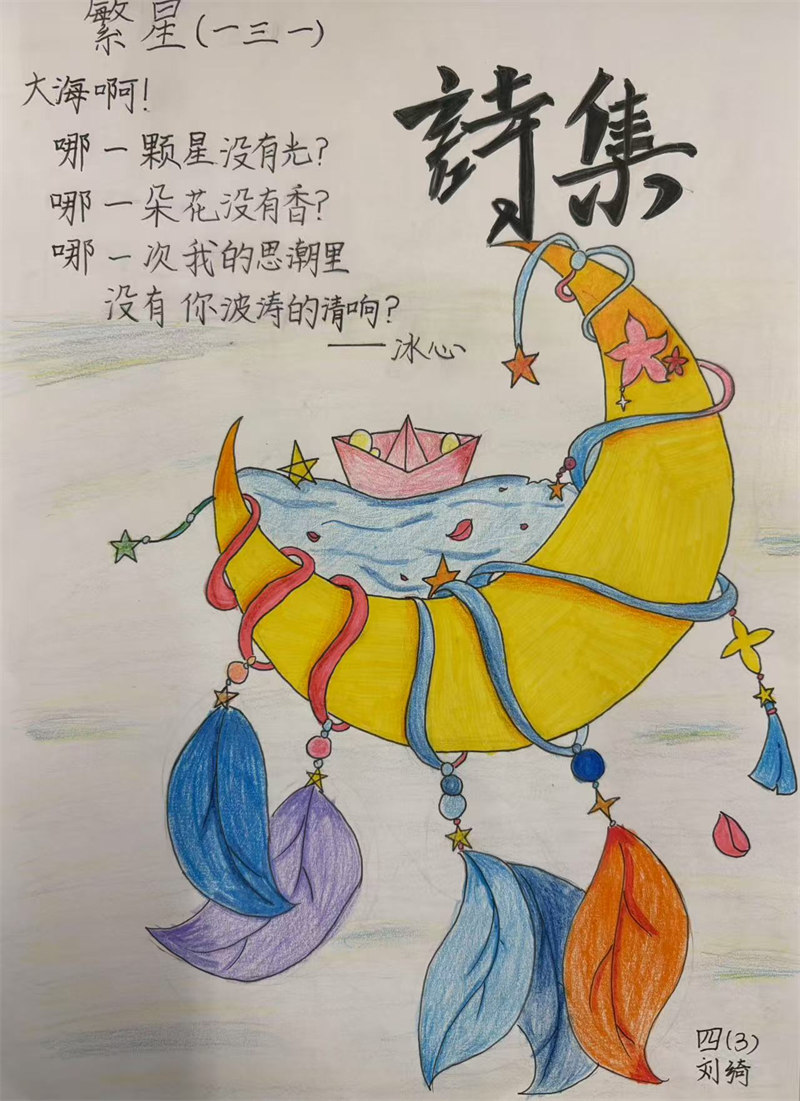 繁星(一三一)
詩集
大海啊!
哪一颗星没有光?
哪一朵花没有香?
哪一次我的思潮里
没有你波涛的清响?
——冰心
四(3)
刘绮